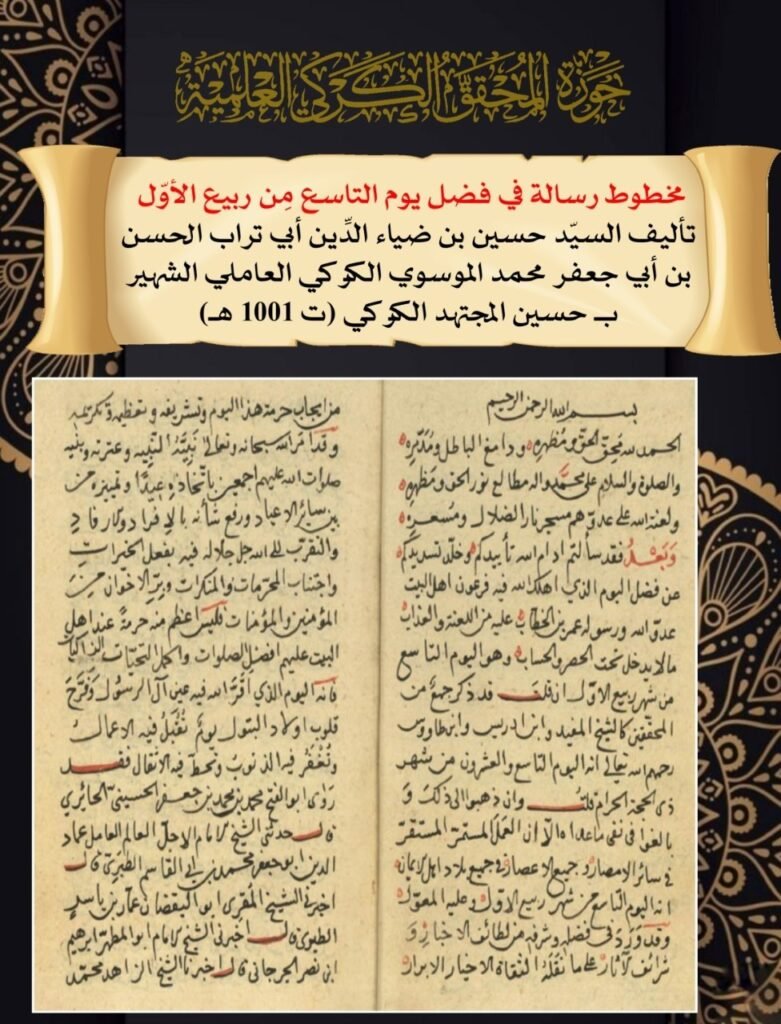 حَوزَةُ المُحَقِّقِ الكَرَكيّ العِلميَّة
مخطوط رسالة في فضل يوم التاسع مِن ربيع الأوّل
تأليف السيّد حسين بن ضياء الدِّين أبي تراب الحسن
بن أبي جعفر محمد الموسوي الكركي العاملي الشهير
بـ حسين المجتهد الكركي (ت 1001 هـ)
بسم الله الرحمن الرحيم
الحمد لله محق الحق ومظهره ودامغ الباطل ومدمره
والصلوة والسلام على محمد واله مطالع نور الحق ومظهره
ولعنة الله على عدوهم مسجر نار الضلال ومسعره
وَبَعْدُ فقد سألتم ادام الله تأييدكم وخلد تسديدكم
عن فضل اليوم الذي اهلك الله فيه فرعون اهل البيت
عدو الله ورسوله عمر بن الخطاب عليه من اللعنة والعذاب
مالا يدخل تحت الحصر والحساب وهو اليوم التاسع
من شهر ربيع الاول ان قلت قد ذكر جمع من
المحققين كالشيخ المفيد وابن ادريس وابن طاووس
رحمهم الله تعالى انه اليوم التاسع والعشرون من شهر
ذي الحجة الحرام قلت وان ذهبوا الى ذلك و
بالغوا في نفى ما عداه الا ان العمل المستمر المستقر
في سائر الامصار وجميع الاعصار في جميع بلاد اهل الايمان
انه اليوم التاسع من شهر ربيع الاول وعليه المعول
وقد وَرَدَ في فضله وشرفه من لطائف الاخبار و
شرائف الآثار على ما نقله الثقاة الاخيار الابرار
من ايجاب حرمة هذا اليوم وتشريفه وتعظيمه وتكرمته
وقد امر الله سبحانه وتعالى نبيه النبيه وعترته وبنيه
صلوات الله عليهم اجمعين باتخاذه عيدًا وتمييزه من
بين سائر الاعياد ورفع شأنه بالافراد وكار فاد
والتقرب لله جل جلاله فيه بفعل الخيرات
واجتناب المحرمات والمنكرات وبر الاخوان من
المؤمنين والمؤمنات فليس اعظم منه حرمةً عند اهل
البيت عليهم افضل الصلوات واكمل التحيات الزاكيات
فانه اليوم الذي اقر الله فيه عين آل الرسول وفرح
قلوب اولاد البتول يوم تُقْبَلُ فيه الاعمال
وتُغْفَر فيه الذنوب وتحط فيه الاثقال فقد
روى ابو الفتح محمد بن محمد بن جعفر الحسيني الحايري
قال حدثني الشيخ الامام الاجل العالم العامل عماد
الدين ابو جعفر محمد بن ابي القاسم الطبري قال
اخبرني الشيخ المقرى ابو اليقضان عمار بن ياسر
الطبري قال اخبرني الشيخ الامام ابو المطهر ابرهيم
ابن نصر الجرجاني قال اخبرنا الشيخ الزاهد محمد